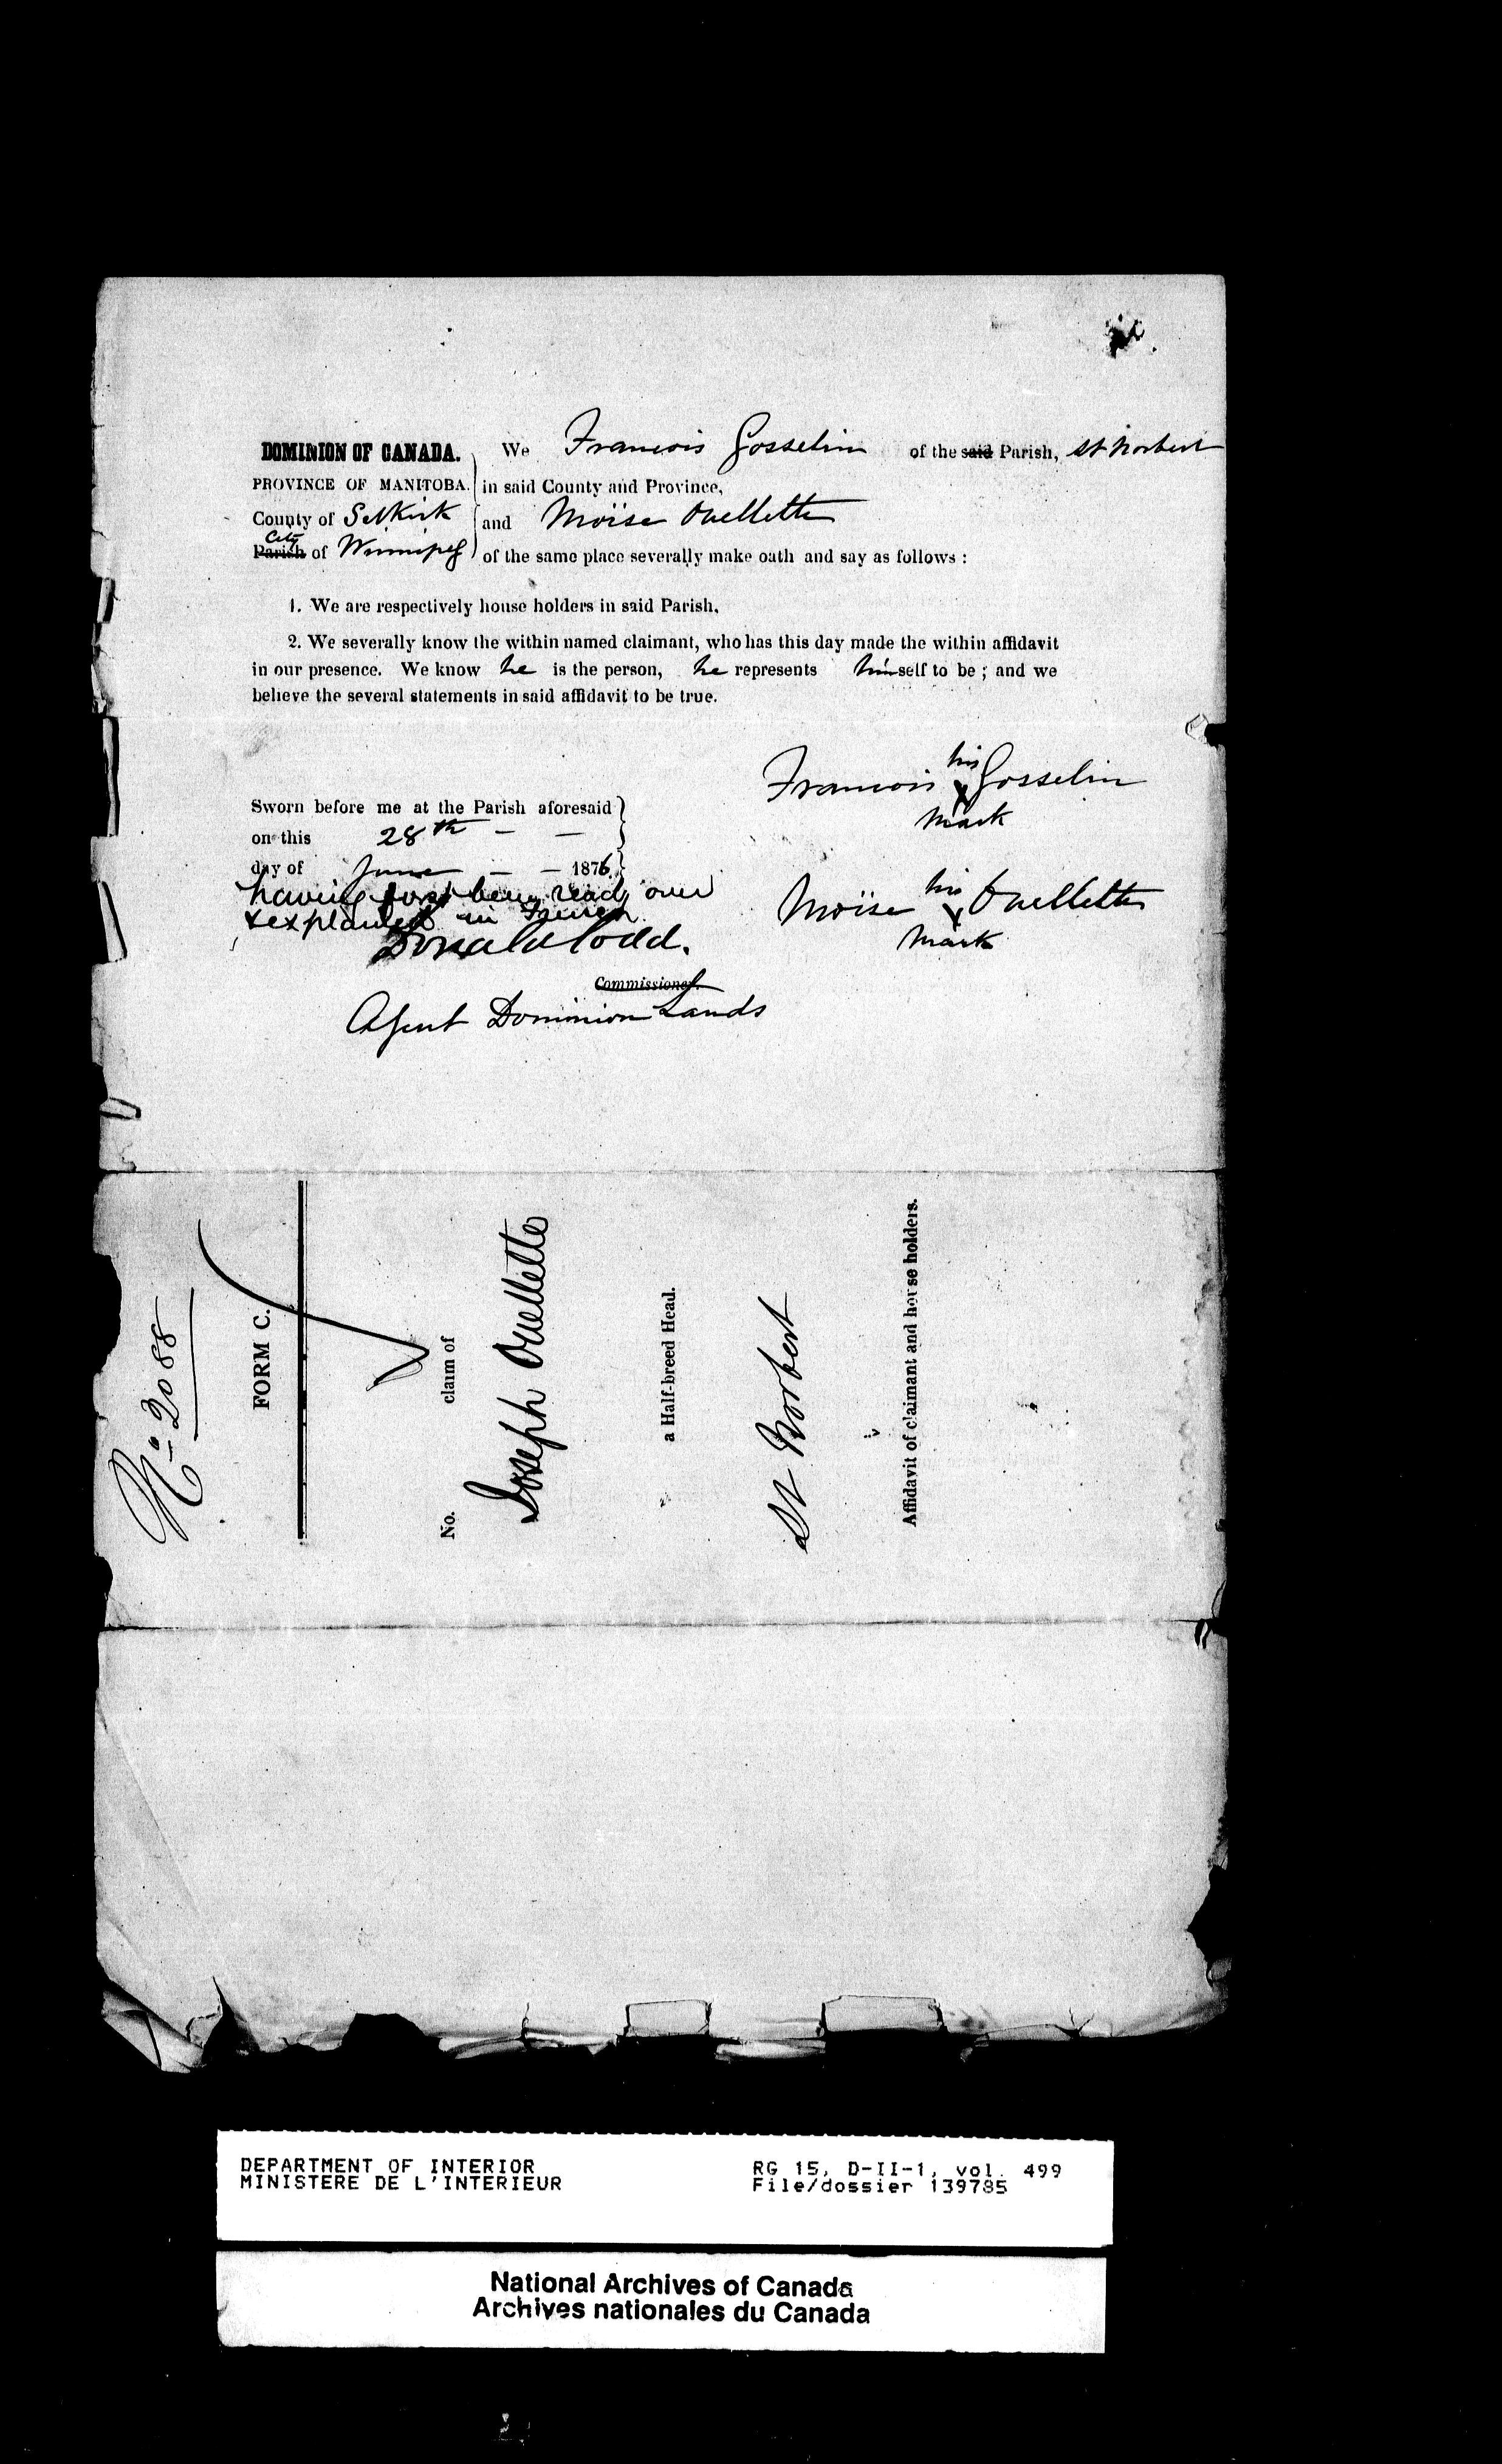 DOMINION OF CANADA. We Francois Gosselin of the said Parish, St Norbert
PROVINCE OF MANITOBA. in said County and Province,
County of Selkirk and Moïse Ouellette
City
Parish of Winnipeg of the same place severally make oath and say as follows :
1. We are respectively house holders in said Parish.
2. We severally know the within named claimant, who has this day made the within affidavit
in our presence. We know he is the person, he represents himself to be ; and we
believe the several statements in said affidavit to be true.
Francois his X Gosselin
mark
Sworn before me at the Parish aforesaid
on this 28th - -
day of June - - 1876
having first been read over
& explained in French
Moïse his X Ouellette
mark
Donald Codd.
Commissioner.
Agent Dominion Lands
No 2088
FORM C.
No. claim of
Joseph Ouellette
a Half-breed Head.
St Norbert
Affidavit of claimant and house holders.
DEPARTMENT OF INTERIOR
MINISTERE DE L'INTERIEUR
RG 15, D-II-1, vol. 499
File/dossier 139785
National Archives of Canada
Archives nationales du Canada